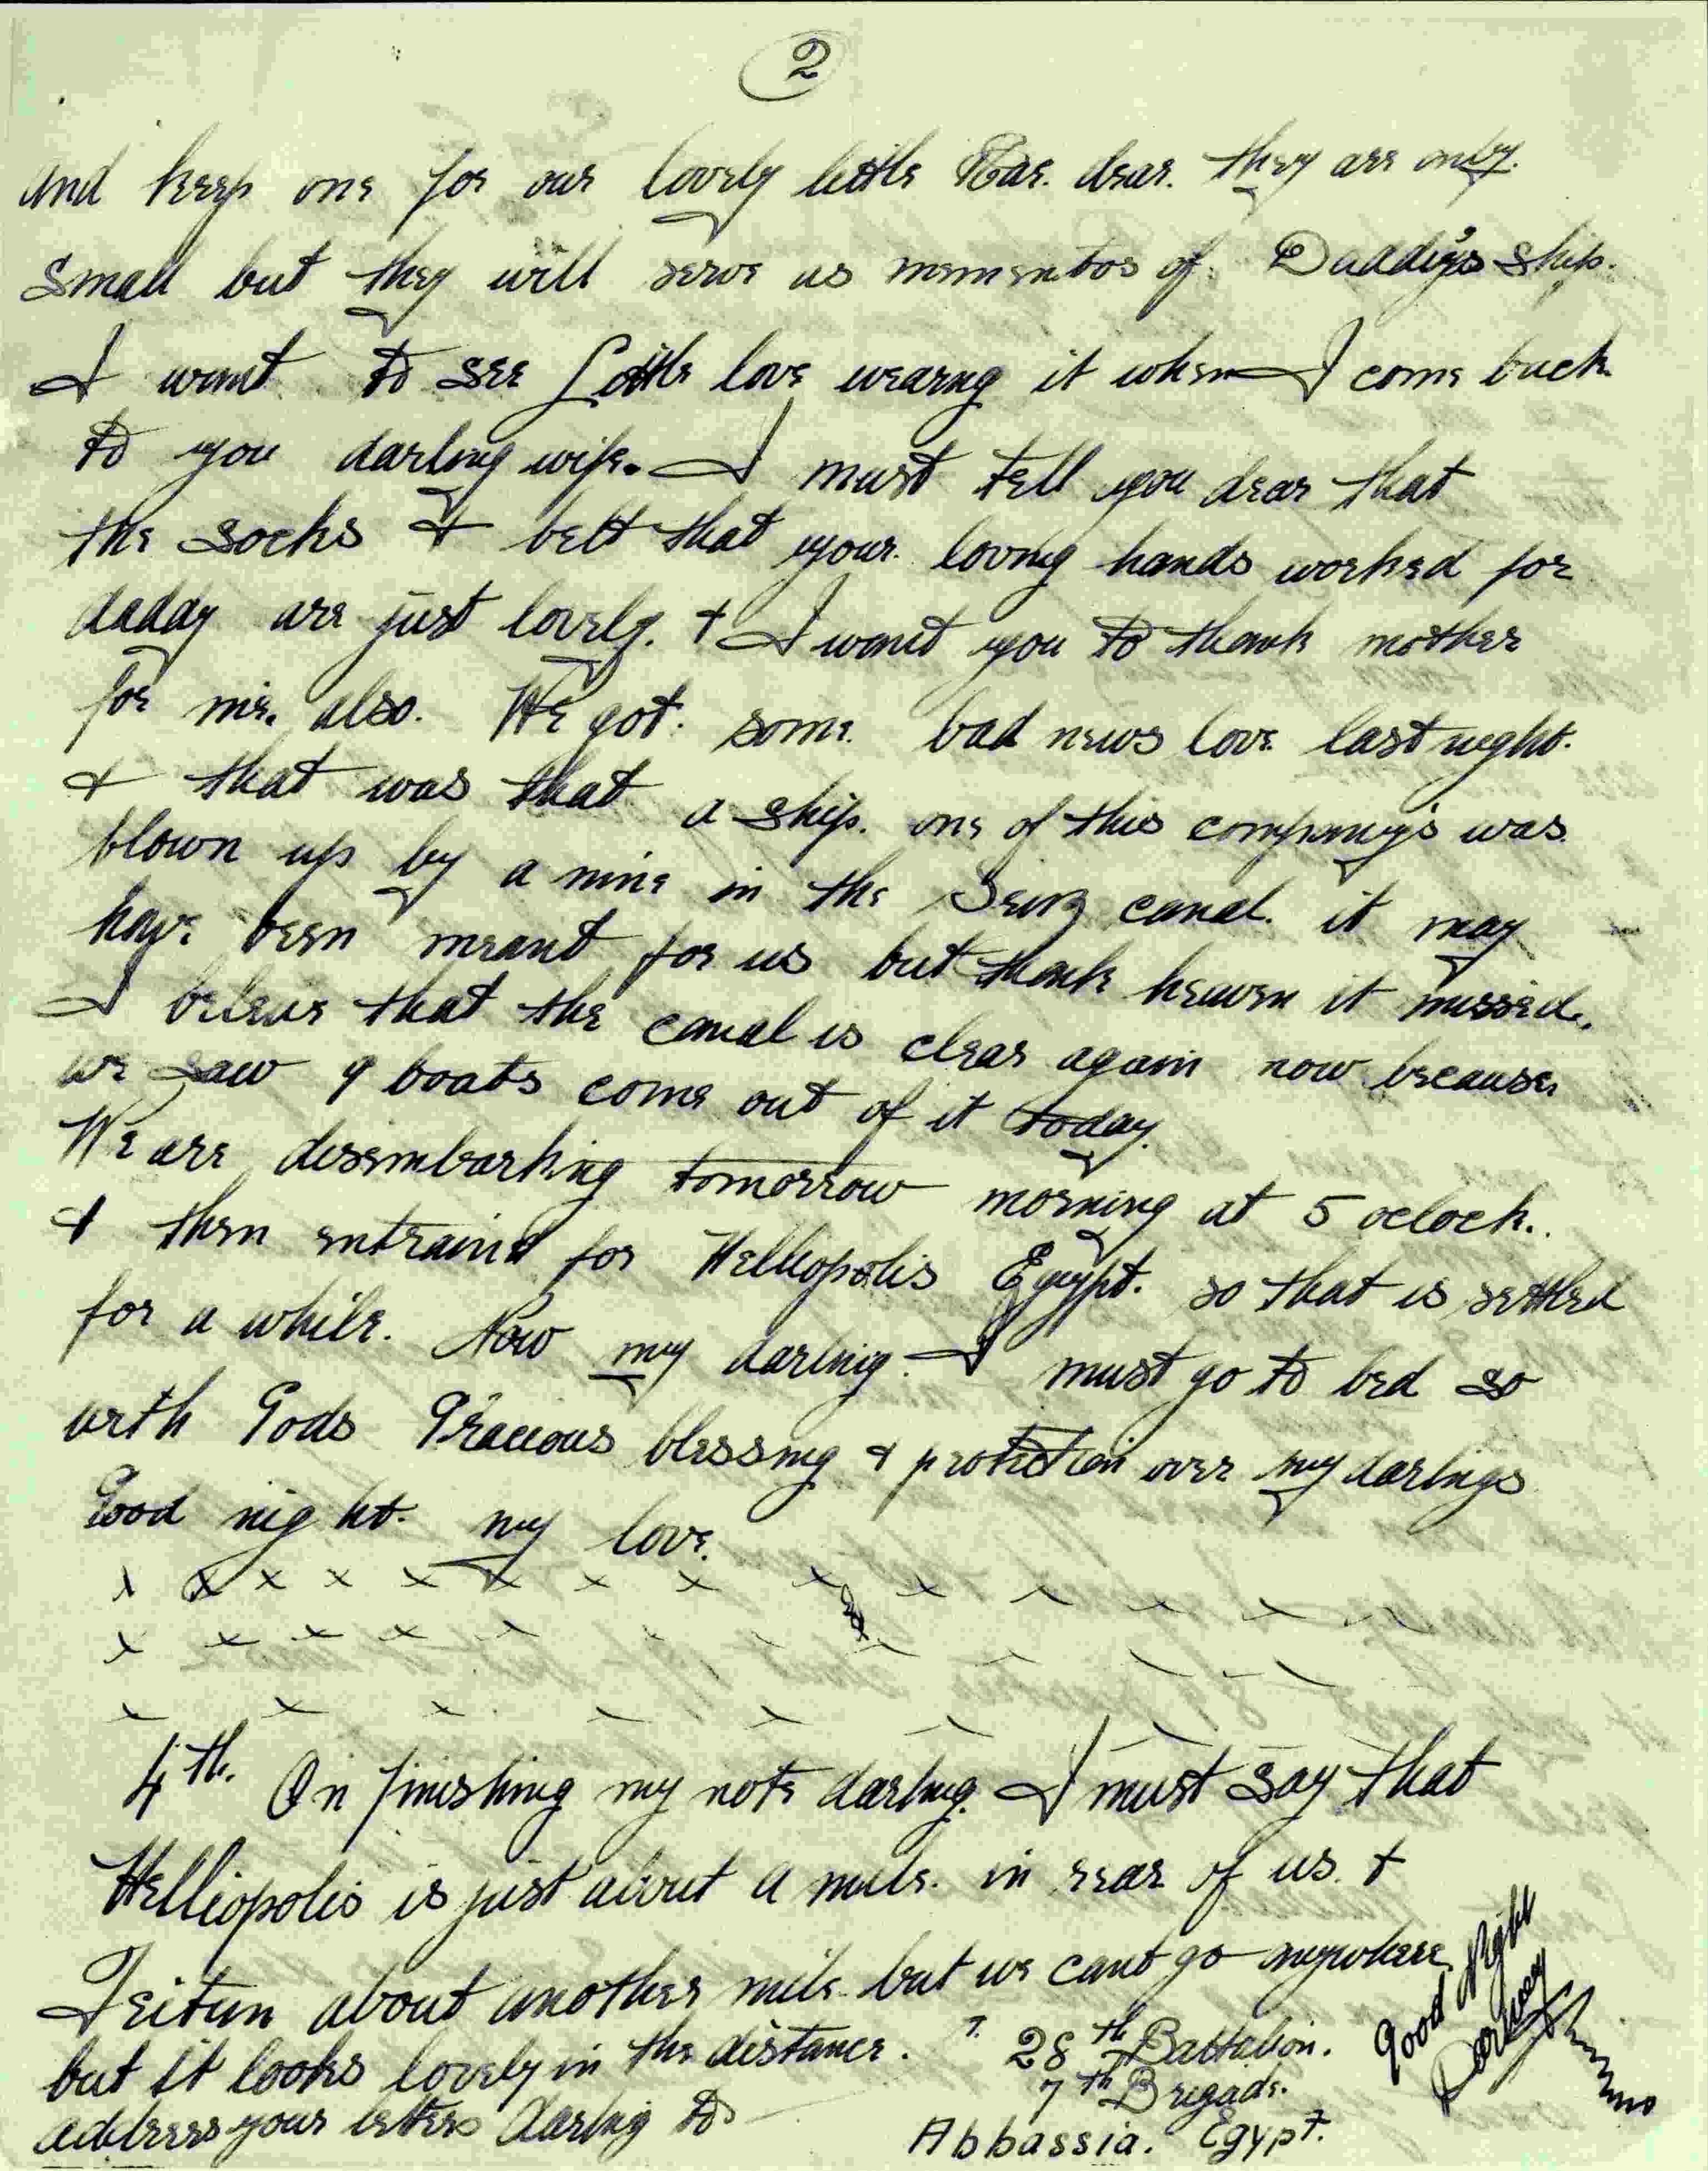 2
and keep one for our lovely little Rae. dear. they are only.
Small but they will serve as mementos of Daddy's ship.
I want to see Little love wearng it when I come back
to you darling wife. I must tell you dear that
the socks & belt that your loving hands worked for
daddy are just lovely. & I want you to thank mother
for me. also. We got some bad news love last night.
& that was that a ship. one of this company's was
blown up by a mine in the Seuz canal. it may
have been meant for us but thank heaven it missed.
I beleive that the canal is clear again now because
we saw 9 boats come out of it today.
We are disembarking tomorrow morning at 5 oclock.
& then entrained for Helliopolis Egypt. so that is settled
for a while. Now my darling. I must go to bed so
with Gods Gracious blessing & protection over my darlings
Good night. my love.
x x x x x x x x x x x x x x
x x x x x x x x x x x x
x x x x x x x x x
4th. On finishing my note darling. I must say that
Helliopolis is just about a mile. in rear of us. &
Zeitun about another mile but we cant go anywhere
but it looks lovely in the distance.
address your letters darling to
28th Battalion.
7th Brigade.
Abbassia. Egypt.
Good Night